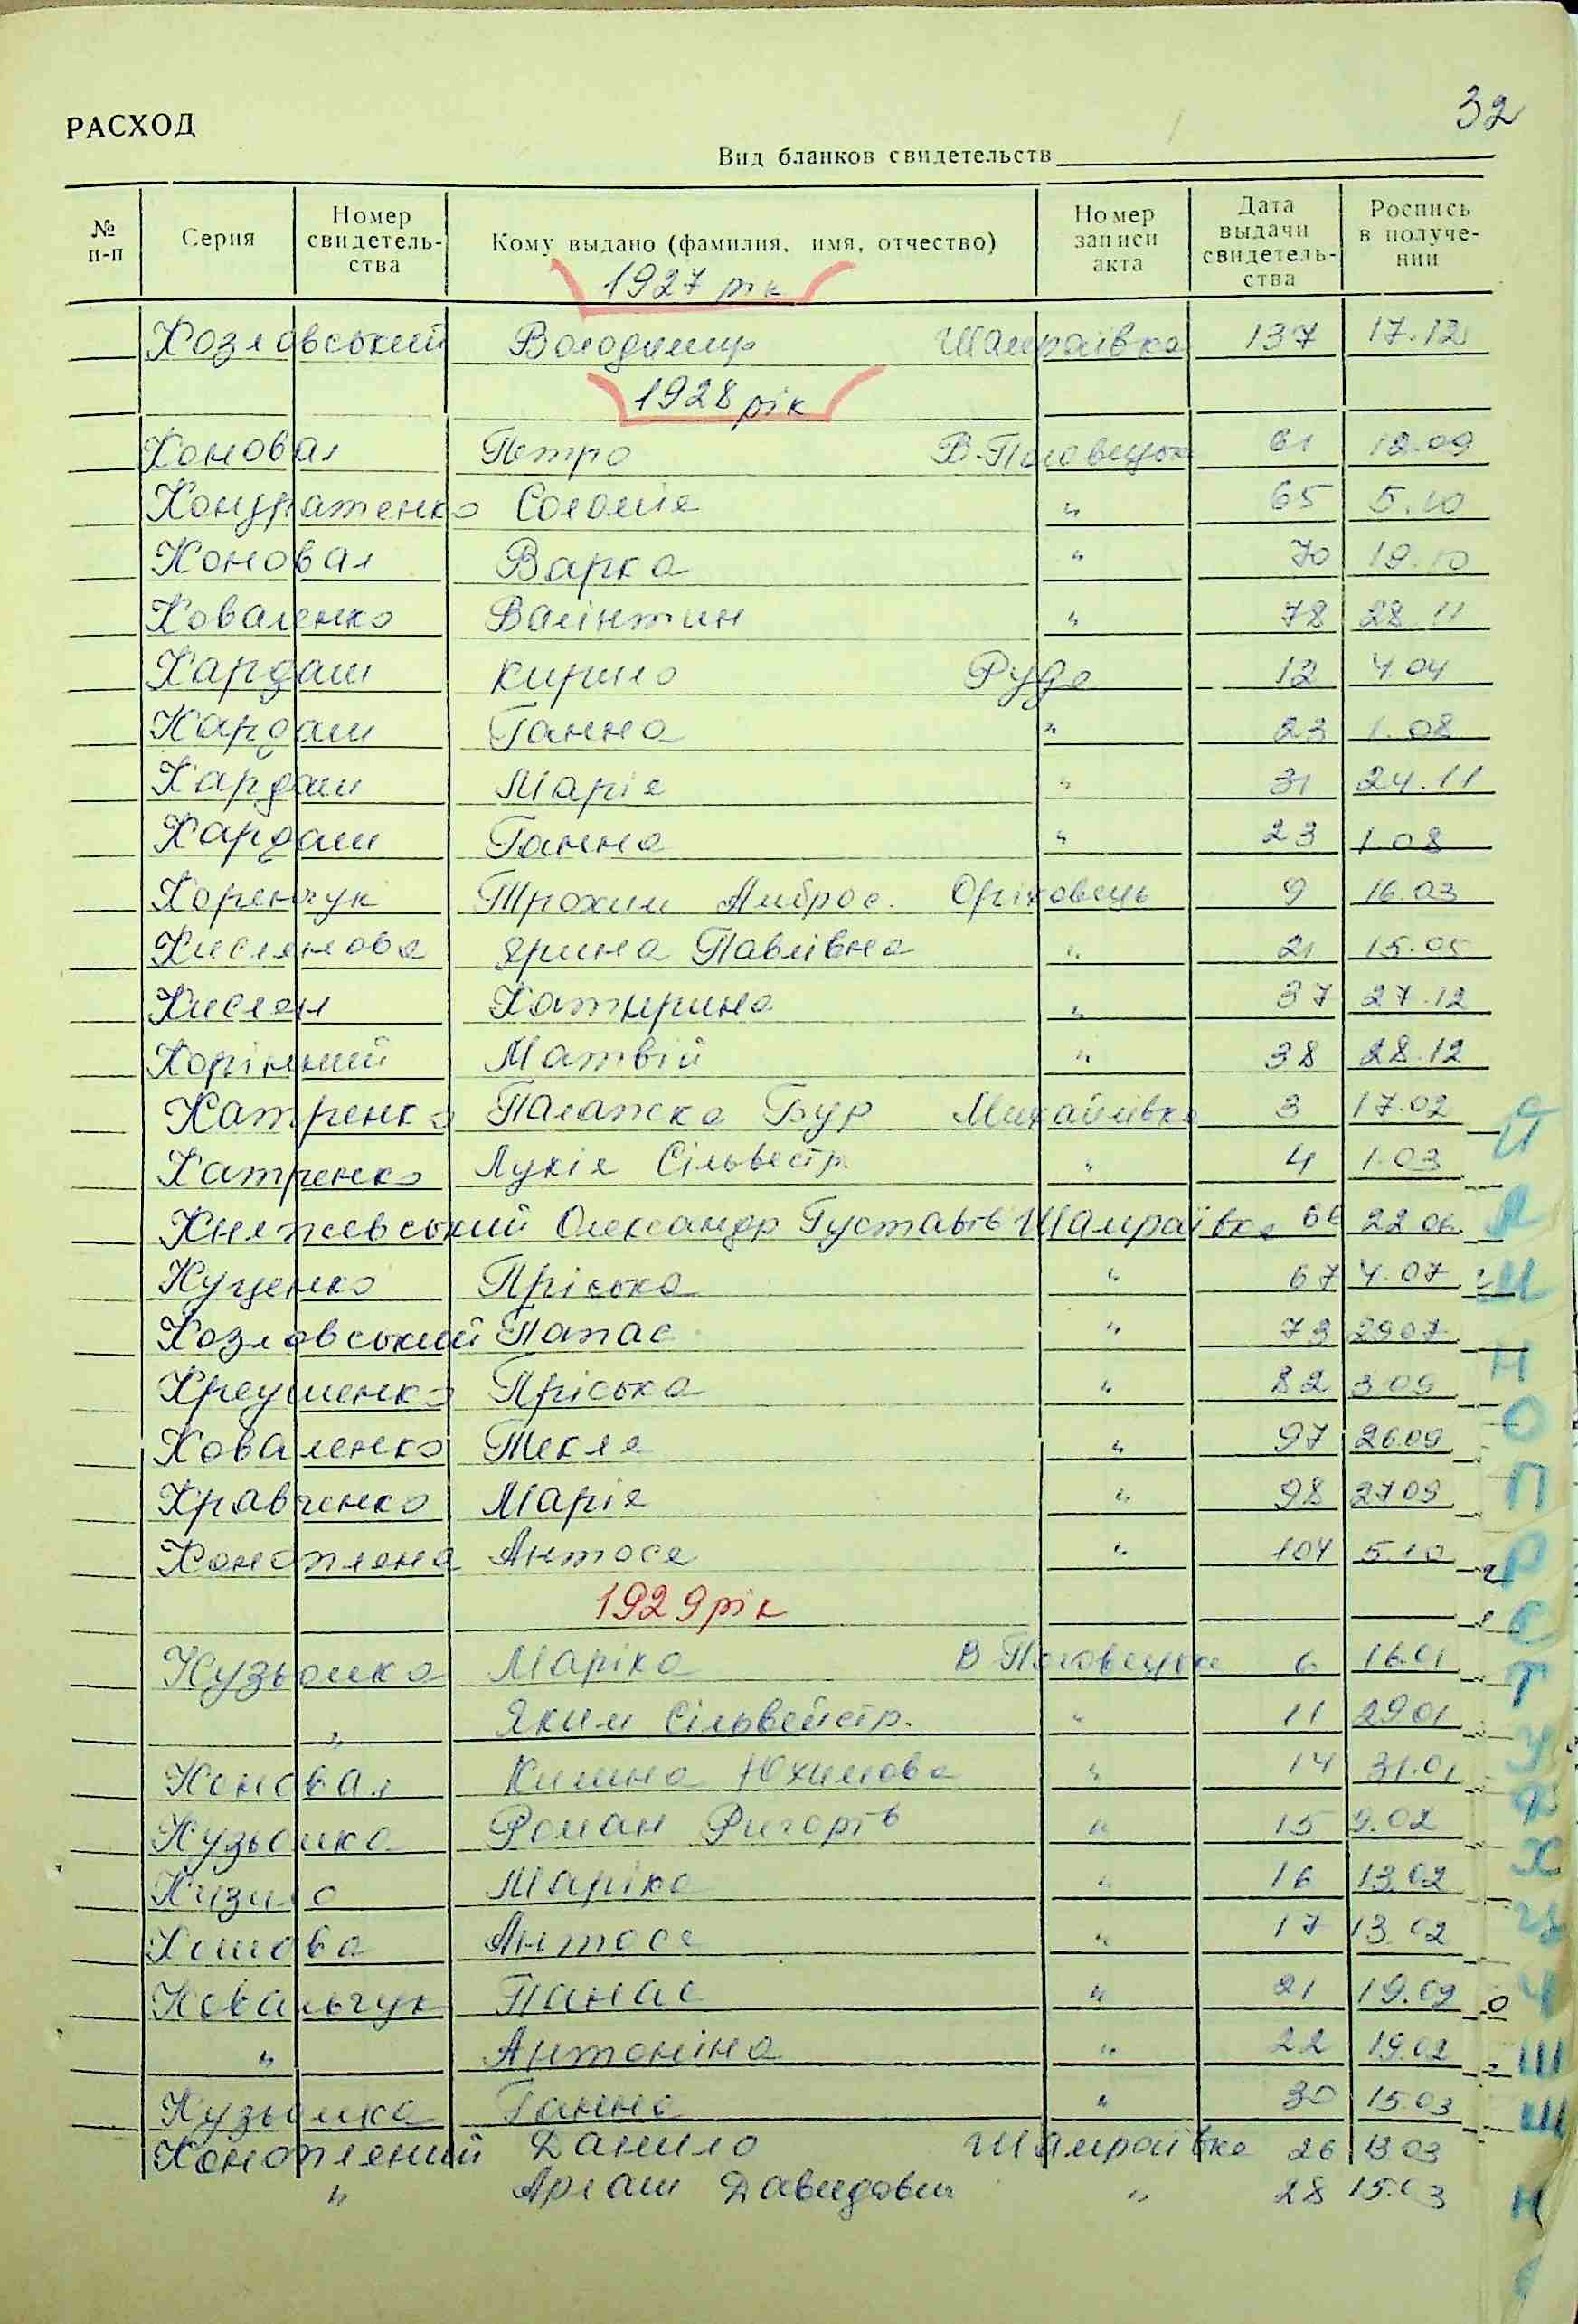 32
РАСХОД
Вид бланков свидетельств
№ п-п Серия Номер свидетель-ства Кому выдано (фамилия, имя, отчество) Номер записи акта Дата выдачи свидетель-ства Роспись в получе-нии
1927 рік
Козловський Володимир Шамраївка 137 17.12
1928 рік
Коновал Петро В-Половецьк 61 12.09
Кондратенко Соломія " 65 5.10
Коновал Варка " 70 19.10
Коваленко Валінтин " 78 28.11
Кардаш Кирило Руда 12 4.04
Кардаш Ганна " 23 1.08
Кардаш Марія " 31 24.11
Кардаш Ганна " 23 1.08
Коренчук Трохим Амброс. Оріховець 9 16.03
Кислянова Ярина Павлівна " 21 15.05
Кислян Катирина " 37 27.12
Корінний Матвій " 38 28.12
Катренко Палажка Бур Михайлівка 3 17.02
Катренко Лукія Сільвестр. " 4 1.03
Княжевський Олександр Густавів Шамраївка 66 22.06
Куценко Пріська " 67 4.07
Козловський Панас " 73 29.07
Пріська " 82 3.09
Коваленко Текля " 97 26.09
Кравченко Марія " 98 27.09
Конопляна Антося " 104 5.10
1929 рік
Кузьомка Маріка В Половецьке 6 16.01
" Яким Сільвейстр. " 11 29.01
Коновал Килина Юхимова " 14 31.01
Кузьомка Роман Ригорів " 15 9.02
Кизило Маріка " 16 13.02
Антося " 17 13.02
Ковальчук Панас " 21 19.02
" Антоніна " 22 19.02
Кузьомка Ганна " 30 15.03
Конопляний Данило Шамраївка 26 13.03
" Давидович " 28 15.03
Й
Л
М
Н
О
П
Р
С
Т
У
Ф
Х
Ц
Ч
Ш
Щ